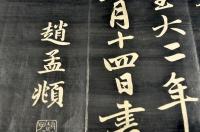 至大二年
月十四日書
趙孟頫